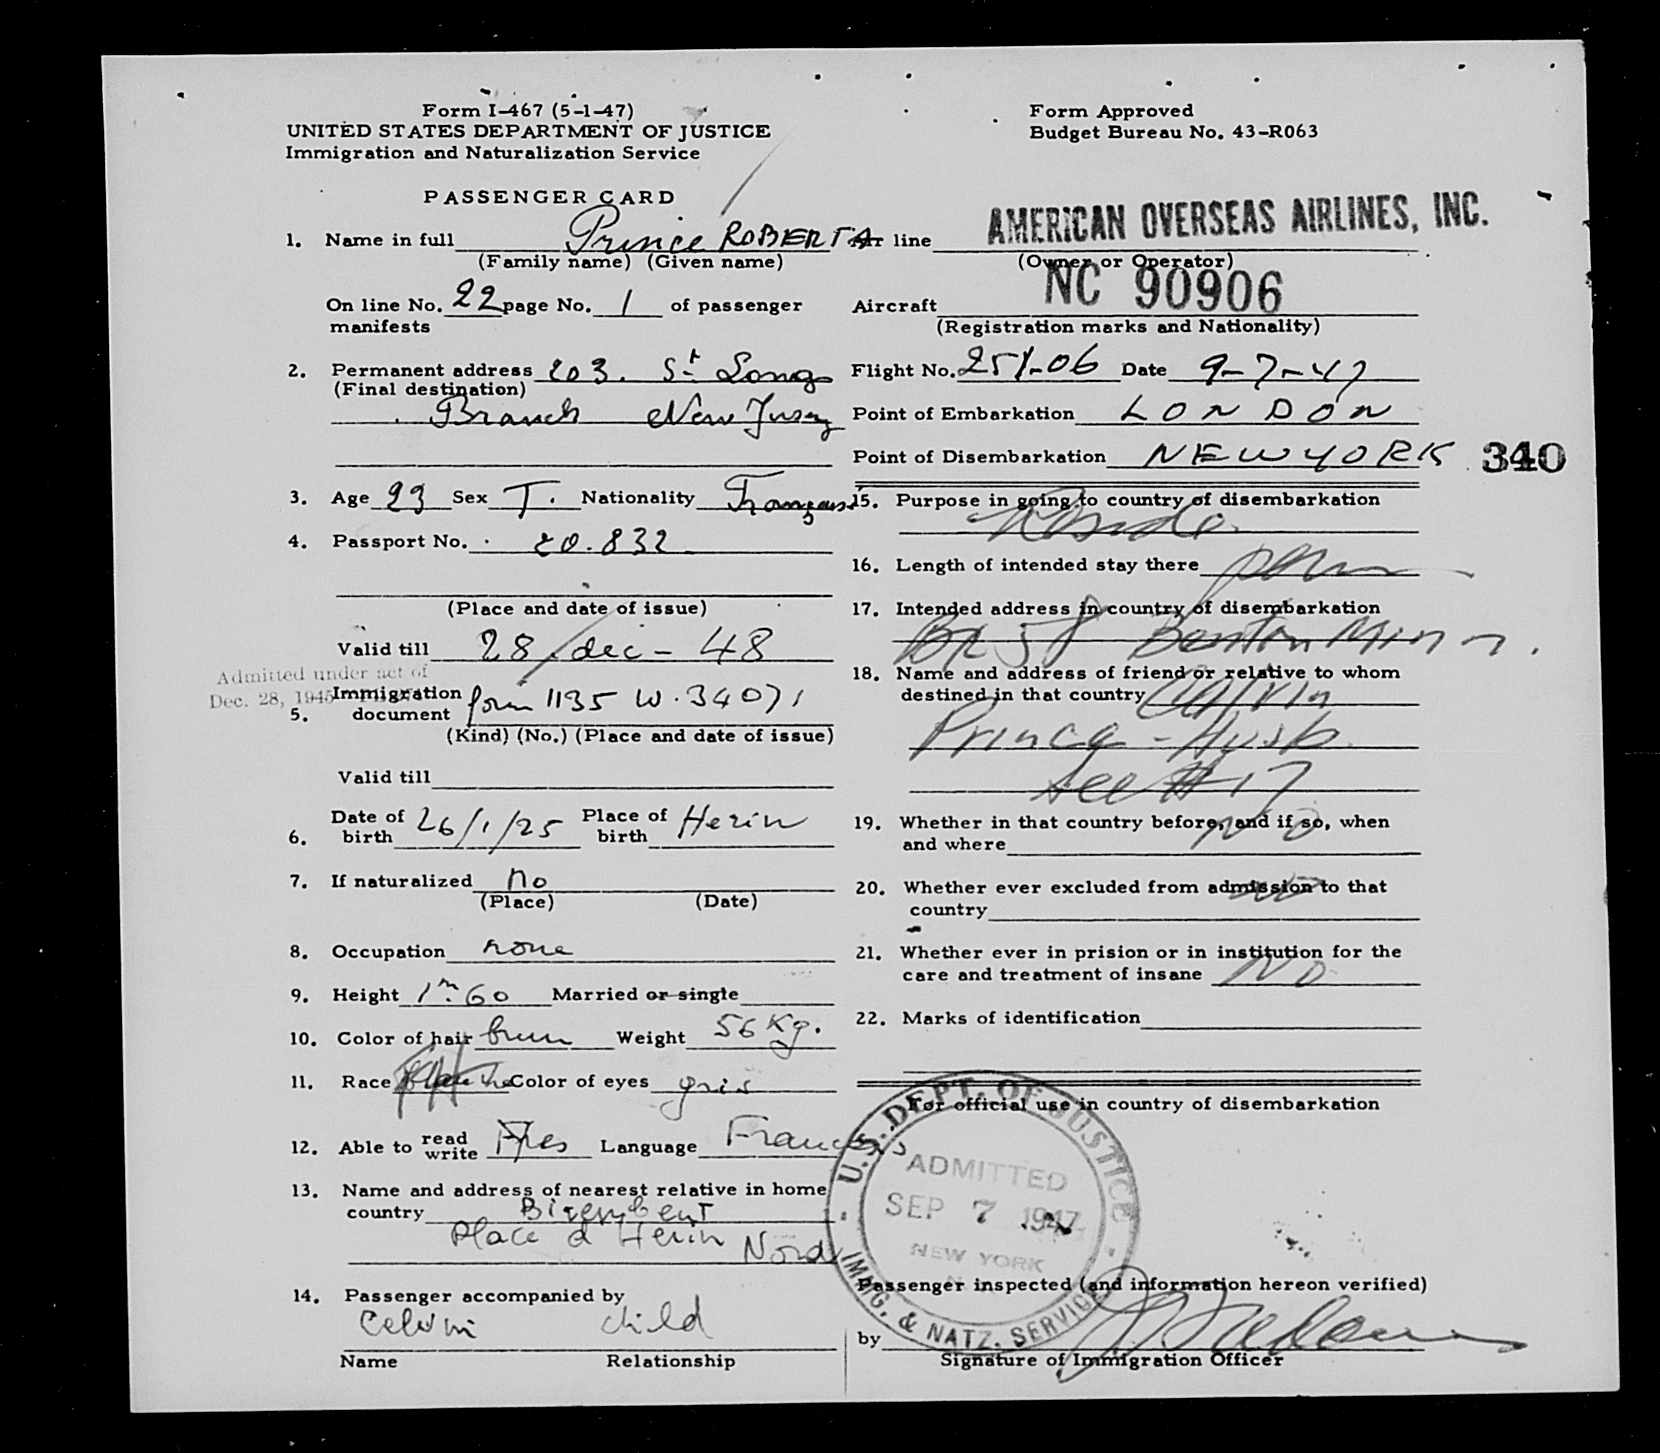 Form I-467 (5-1-47)
UNITED STATES DEPARTMENT OF JUSTICE
Immigration and Naturalization Service
Form Approved
Budget Bureau No. 43-R063
PASSENGER CARD
1. Name in full Prince ROBERTA
(Family name) (Given name)
On line No. 22 page No. 1 of passenger
manifests
2. Permanent address 203. St Long
(Final destination)
Branch New Jersey
3. Age 23 Sex F. Nationality Française
4. Passport No. 20.832
(Place and date of issue)
Valid till 28/dec - 48
Admitted under act of
Dec. 28, 1945
5. Immigration document form 1135 W. 34071
(Kind) (No.) (Place and date of issue)
Valid till
6. Date of birth 26/1/25 Place of birth Herin
7. If naturalized no
(Place) (Date)
8. Occupation none
9. Height 1m60 Married or single
10. Color of hair brun Weight 56 Kg.
11. Race Color of eyes gris
12. Able to read write yes Language Francais
13. Name and address of nearest relative in home
country
Place d Herin Nord
14. Passenger accompanied by
Calvin child
Name Relationship
Air line AMERICAN OVERSEAS AIRLINES, INC.
(Owner or Operator)
Aircraft NC 90906
(Registration marks and Nationality)
Flight No. 251-06 Date 9-7-47
Point of Embarkation LONDON
Point of Disembarkation NEW YORK 340
15. Purpose in going to country of disembarkation
Reside
16. Length of intended stay there perm
17. Intended address in country of disembarkation
Bx 58 Benton Minn.
18. Name and address of friend or relative to whom
destined in that country Calvin
Prince - Husb
See #17
19. Whether in that country before, and if so, when
and where No
20. Whether ever excluded from admission to that
country no
21. Whether ever in prision or in institution for the
care and treatment of insane No
22. Marks of identification
For official use in country of disembarkation
U.S. DEPT. OF JUSTICE
ADMITTED
SEP 7 1947
NEW YORK
IMMIG. & NATZ. SERVICE
Passenger inspected (and information hereon verified)
by
Signature of Immigration Officer